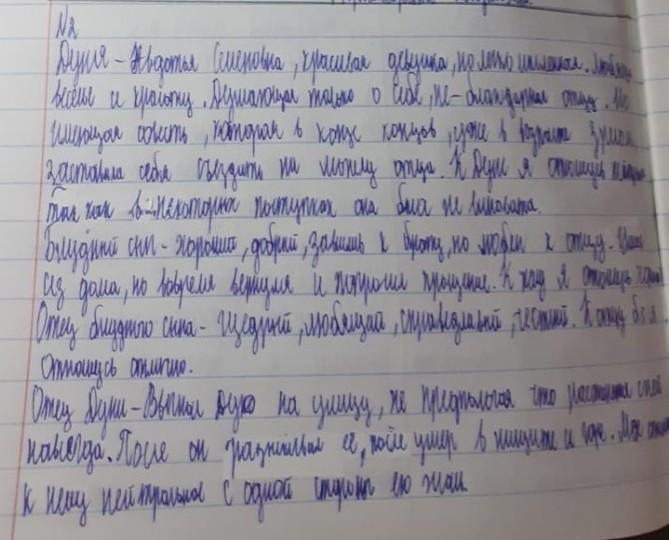 N2
Дуня - Авдотья Семеновна, красивая девушка, но легкомысленная. Любящая
веселье и красоту. Думающая только о себе, не-благодарная отцу. Но
имеющая совесть, которая в конце концов, уже в возрасте
заставила себя съездить на могилу отца. К Дуне я отношусь
так как в некоторых поступках она была не виновата.
Блудный сын - хороший, добрый, зависть к брату, но любви к отцу. Ушёл
из дома, но вовремя вернулся и попросил прощение. К я отношусь
Отец блудного сына - щедрый, любящий, справедливый, честный. К отцу б.с я
отношусь отлично.
Отец Дуни - Дуню на улицу, не предпологая что растанется с ней
навсегда. После он разыскивал ее, после умер в нищите и горе. Мое
к нему нейтральное с одной стороны его жаль